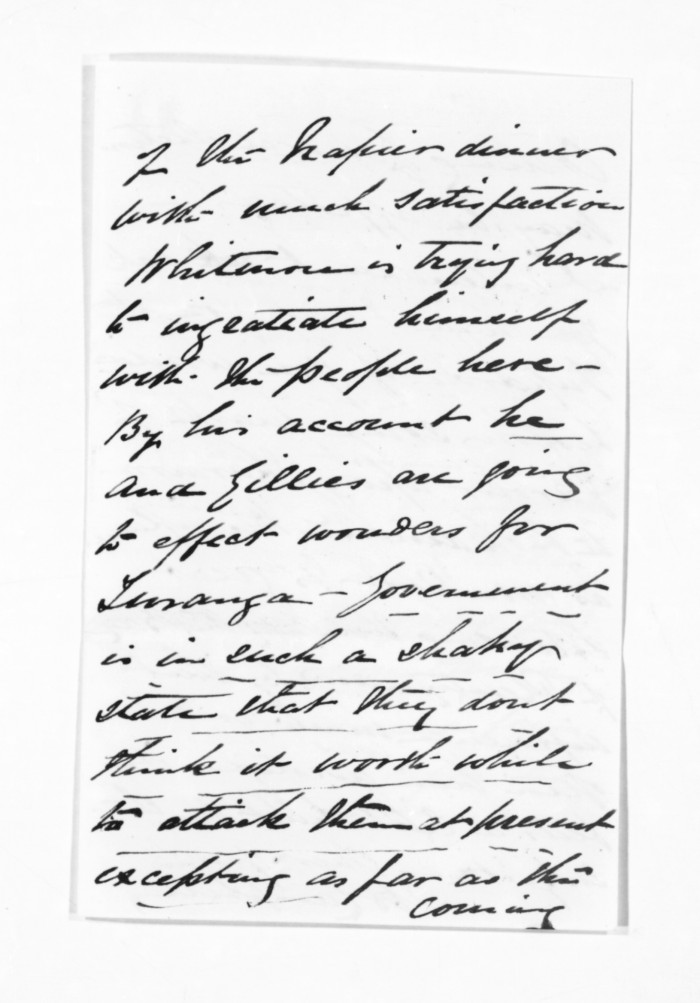 of the Napier dinner
with much satisfaction
Whitmore is trying hard
to ingratiate himself
with the people here -
By his account he
and Gillies are going
to effect wonders for
Turanga - Government
is in such a shaky
state that they dont
think it worth while
to attack them at present
excepting as far as this
coming